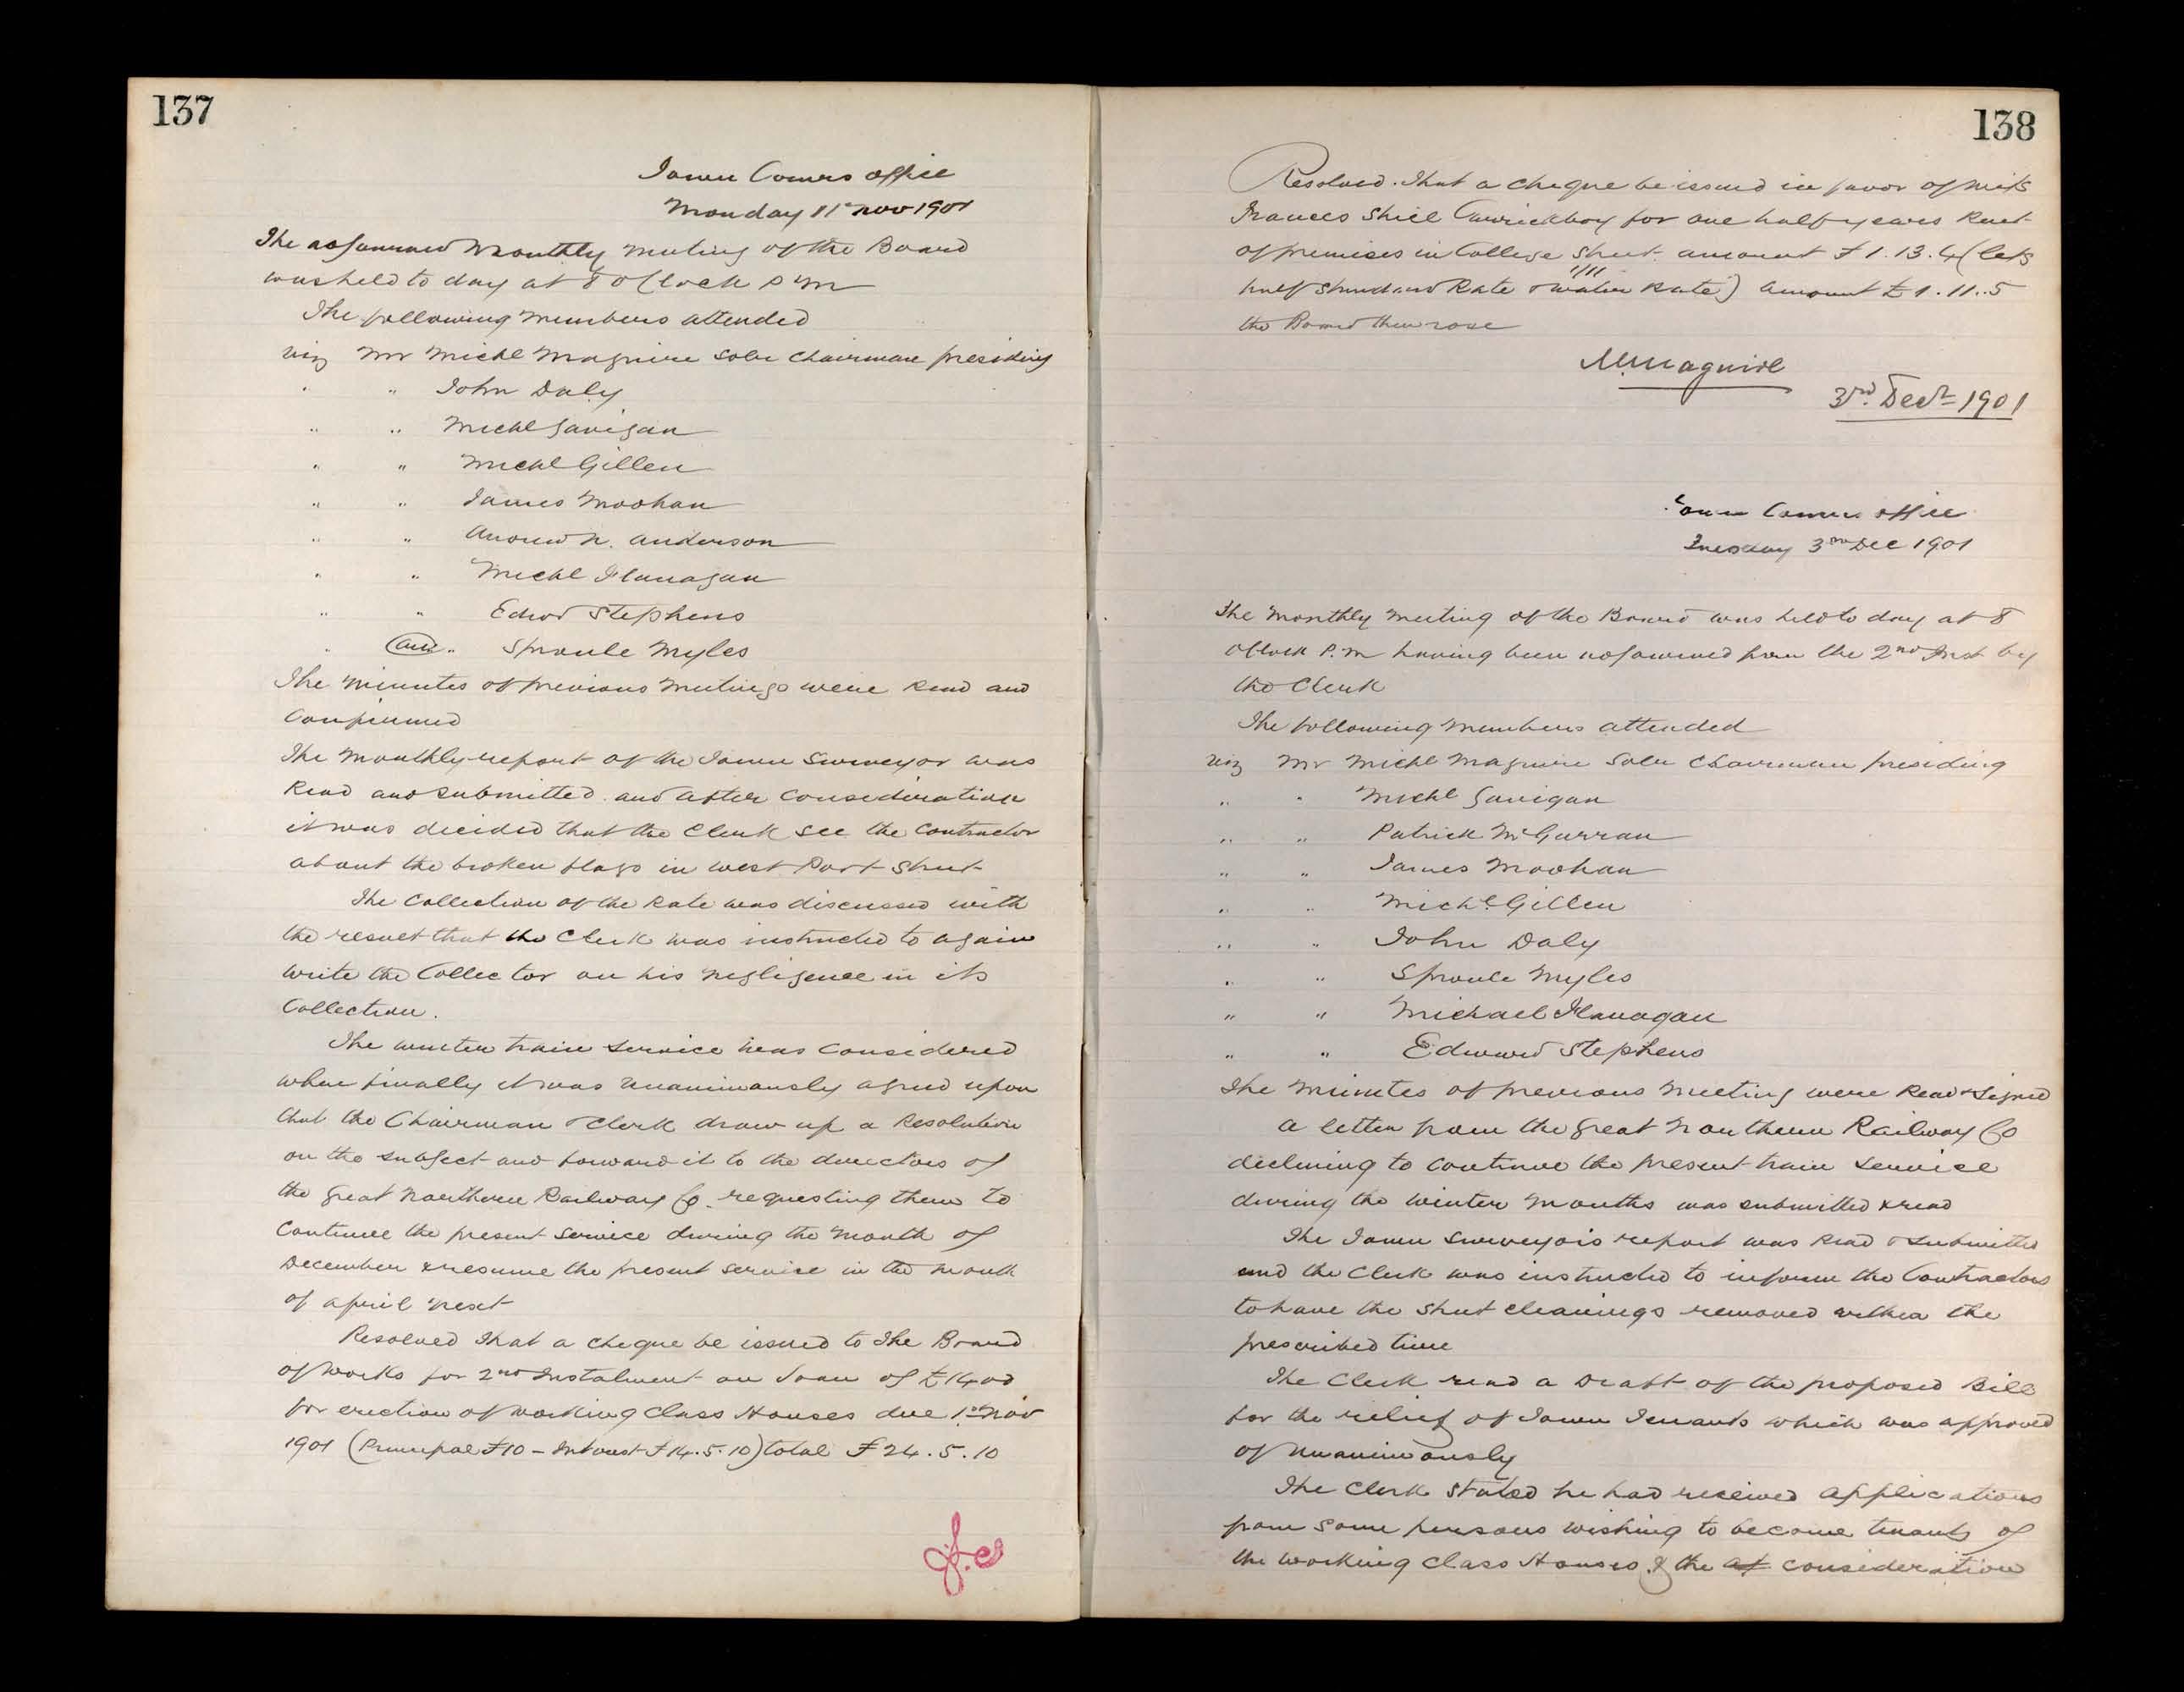 137
Town Comrs office
Monday 11th Nov 1901
The adjourned Monthly Meeting of the Board
was held to day at 8 o Clock P M
The following Members attended
viz Mr Michl Maguire Solr Chairman presiding
" " John Daly
" " Michl Gavigan
" " Michl Gillen
" " James Moohan
" " Andrew N. Anderson
" " Michl Flanagan
" " Edwd Stephens
" and " Sproule Myles
The Minutes of previous Meetings were Read and
Confirmed
The Monthly report of the Town Surveyor was
Read and submitted and after consideration
it was decided that the Clerk see the Contractor
about the broken flags in West Port Street
The Collection of the Rate was discussed with
the result that the Clerk was instructed to again
write the Collector on his negligence in its
Collection.
The winter train service was considered
when finally it was unanimously agreed upon
that the Chairman & Clerk draw up a Resolution
on the subject and forward it to the directors of
the Great Northern Railway Co. requesting them to
continue the present service during the month of
December & resume the present service in the month
of April next
Resolved That a cheque be issued to The Board
of Works for 2nd Instalment on Loan of £1400
for erection of Working Class Houses due 1st Nov
1901 (Principal £10 – Interest £14.5.10) total £24.5.10
J.C
138
Resolved. That a cheque be issued in favor of Miss
Frances Shiel Carrickboy for one half years Rent
of premises in College Street. amount £1.13.4 (less
1/11
half Standard Rate & Water Rate) Amount £1.11.5
the Board then rose
M. Maguire
3rd. Decr 1901
Town Comrs office
Tuesday 3rd Dec 1901
The Monthly Meeting of the Board was held to day at 8
oClock P.M having been adjourned from the 2nd Inst by
the Clerk
The following Members attended
viz Mr Michl Maguire Solr Chairman presiding
" " Michl Gavigan
" " Patrick McGurran
" " James Moohan
" " Michl Gillen
" " John Daly
" " Sproule Myles
" " Michael Flanagan
" " Edward Stephens
The Minutes of previous Meeting were Read & Signed
A letter from the Great Northern Railway Co
declining to continue the present train service
during the winter months was submitted & read
The Town Surveyors report was Read & submitted
and the Clerk was instructed to inform the Contractors
to have the street cleanings removed within the
prescribed time
The Clerk read a Draft of the proposed Bill
for the relief of Town Tenants which was approved
of unanimously
The Clerk stated he had received applications
from some persons wishing to become tenants of
the Working Class Houses & the of consideration